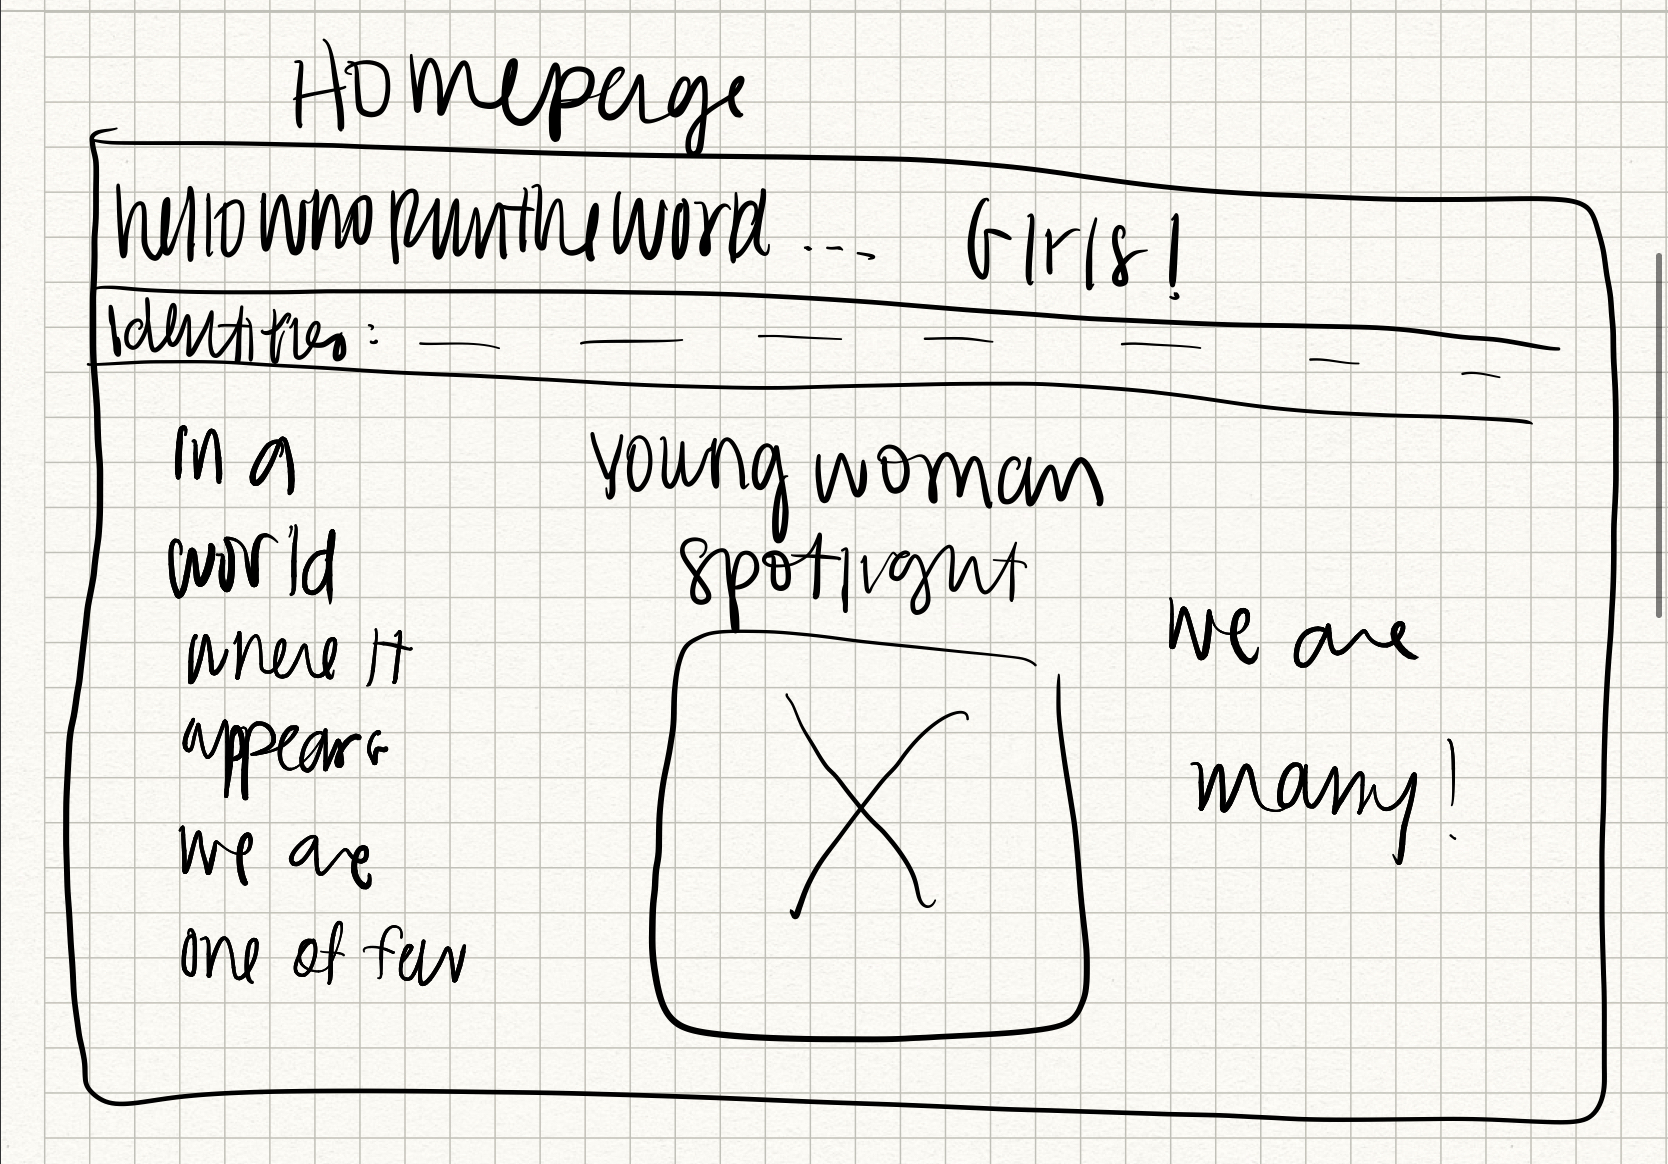 Homepage
hello who run the word ... Girls!
identities: — — — — — — —
in a
world
where it
appears
we are
one of few
young woman
spotlight
we are
many!